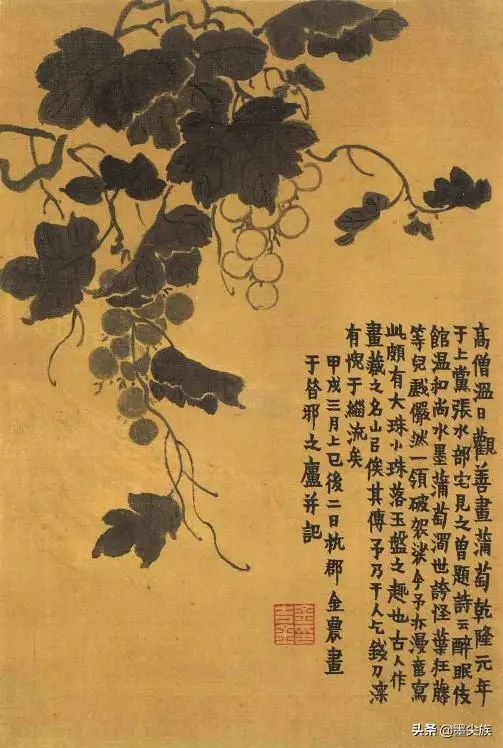 高僧溫日觀善畫蒲萄乾隆元年
于上黨張水部宅見之曾題詩云醉眠伎
館溫和尚水墨蒲萄濁世誇怪葉狂藤
等兒戲儼然一領破袈裟今予亦漫意寫
此頗有大珠小珠落玉盤之趣也古人作
畫藏之名山㠯俟其傳予乃干人乞錢刀深
有愧于緇流矣
甲戌三月上巳後二日杭郡金農畫
于昝邪之廬并記
头条 @墨尖族